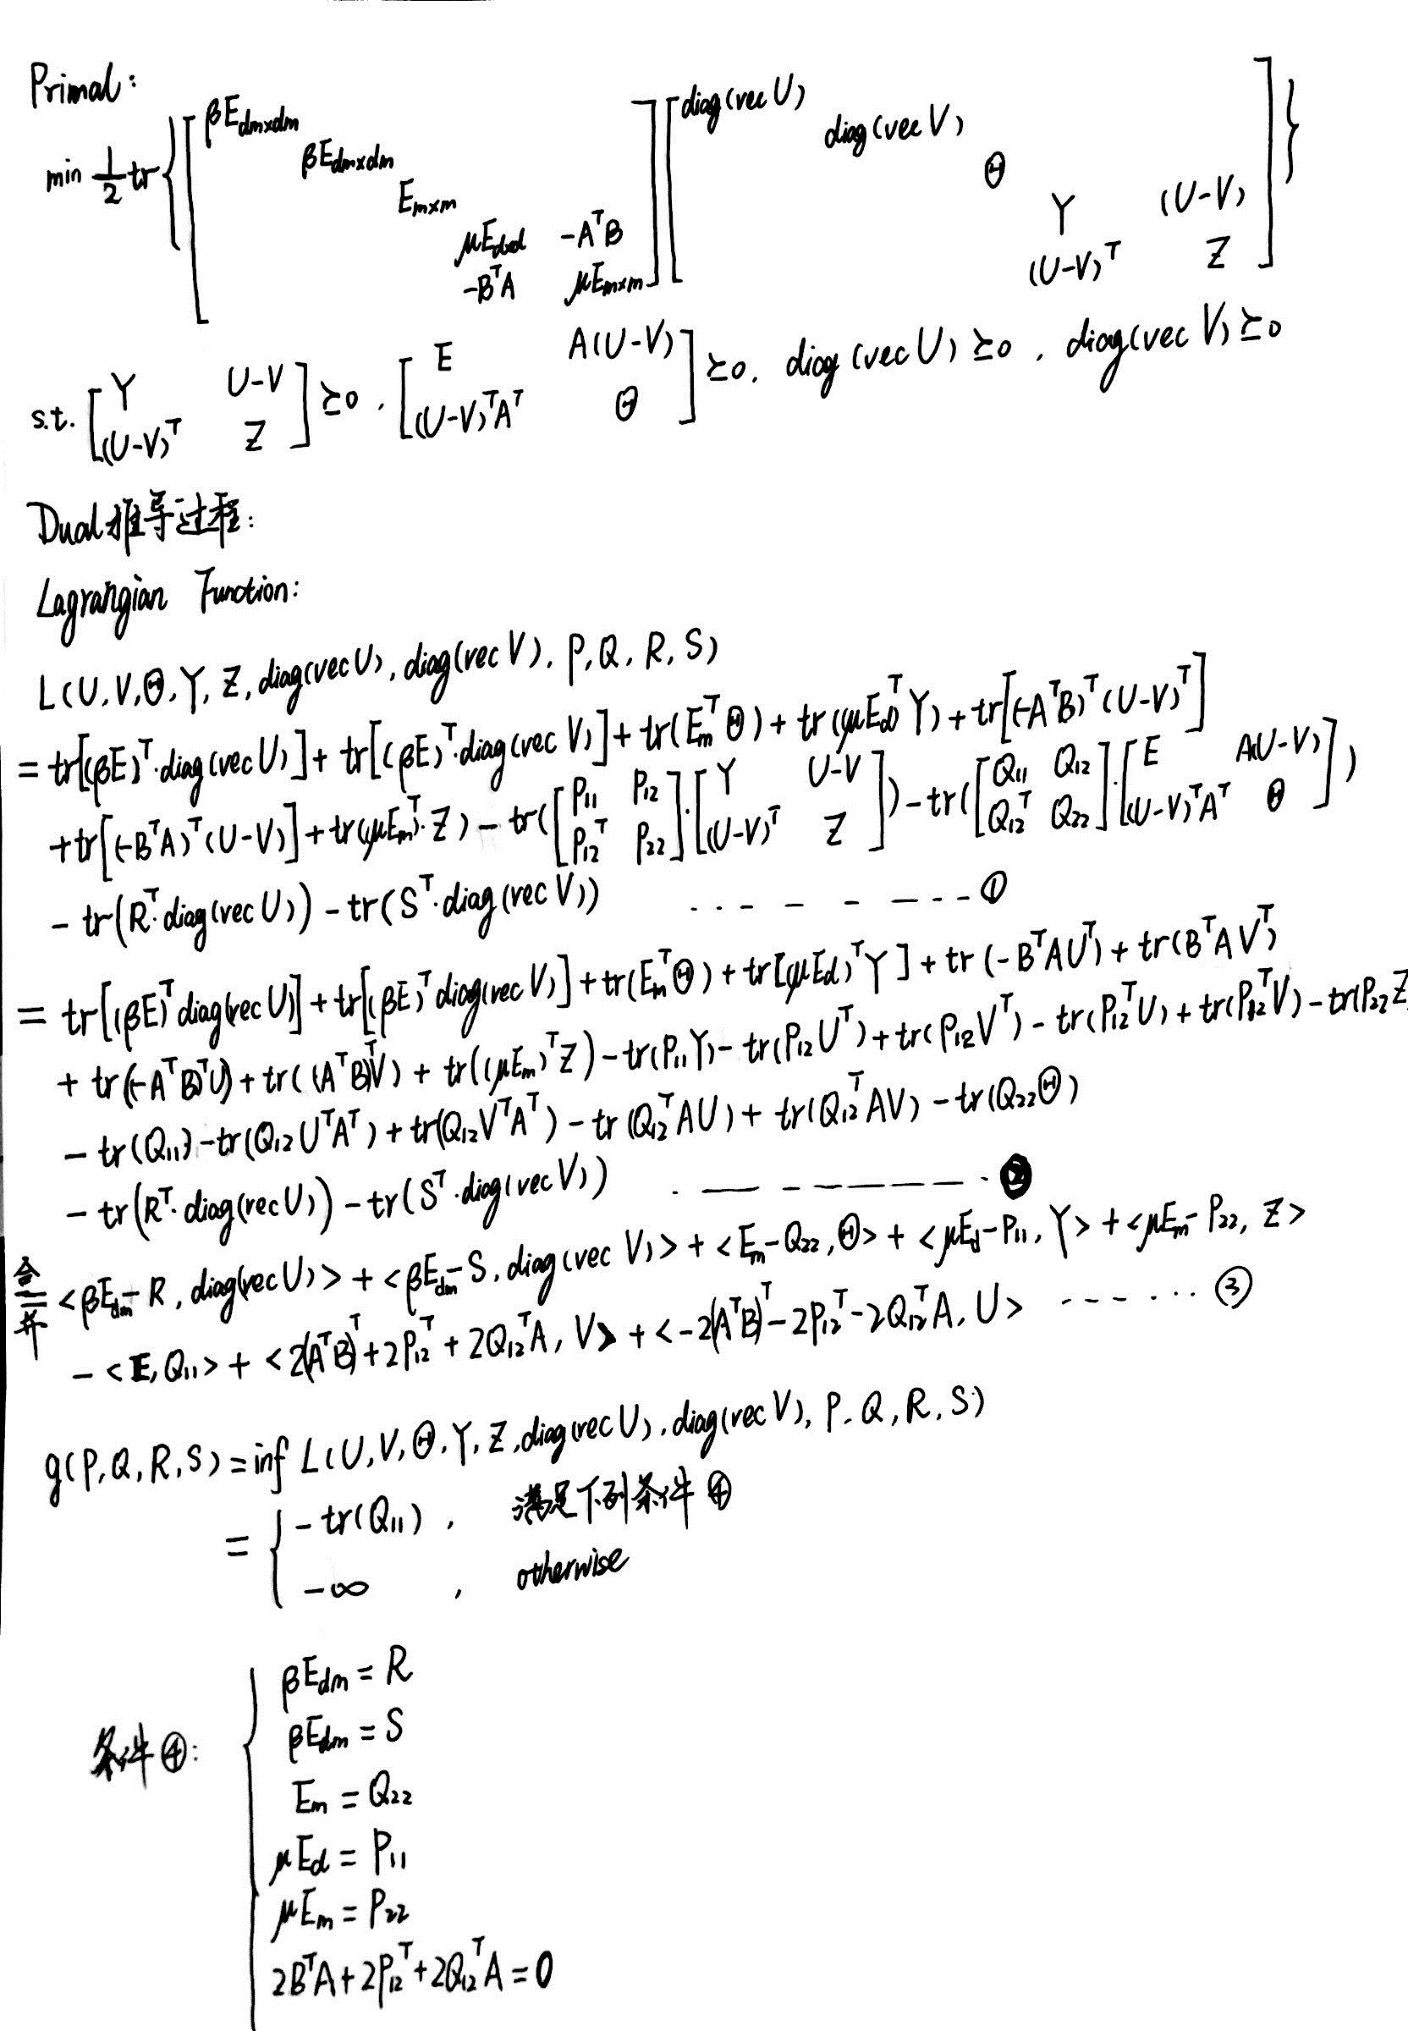 Primal:
min 1/2 tr { [ βE_{dm×dm} βE_{dm×dm} E_{m×m} μE_{d×d} -A^T B -B^T A μE_{m×m} ] [ diag(vec U) diag(vec V) Θ Y (U-V) (U-V)^T Z ] }
s.t. [ Y U-V (U-V)^T Z ] ≽0 , [ E A(U-V) (U-V)^T A^T Θ ] ≽0. diag(vec U) ≽0 , diag(vec V) ≽0
Dual推导过程:
Lagrangian Function:
L(U,V,Θ,Y,Z,diag(vec U),diag(vec V),P,Q,R,S)
= tr[(βE)^T·diag(vec U)] + tr[(βE)^T·diag(vec V)] + tr(E_m^T Θ) + tr(μE_d^T Y) + tr[(-A^T B)^T (U-V)^T]
+ tr[(-B^T A)^T (U-V)] + tr(μE_m^T·Z) - tr([ P_{11} P_{12} P_{12}^T P_{22} ]·[ Y U-V (U-V)^T Z ]) - tr([ Q_{11} Q_{12} Q_{12}^T Q_{22} ]·[ E A(U-V) (U-V)^T A^T Θ ])
- tr(R^T·diag(vec U)) - tr(S^T·diag(vec V)) ------- ①
= tr[(βE)^T diag(vec U)] + tr[(βE)^T diag(vec V)] + tr(E_m^T Θ) + tr[(μE_d)^T Y] + tr(-B^T A U^T) + tr(B^T A V^T)
+ tr((-A^T B)^T U) + tr((A^T B)^T V) + tr((μE_m)^T Z) - tr(P_{11}Y) - tr(P_{12}U^T) + tr(P_{12}V^T) - tr(P_{12}^T U) + tr(P_{12}^T V) - tr(P_{22}Z
- tr(Q_{11}) - tr(Q_{12}U^T A^T) + tr(Q_{12}V^T A^T) - tr(Q_{12}^T AU) + tr(Q_{12}^T AV) - tr(Q_{22}Θ)
- tr(R^T·diag(vec U)) - tr(S^T·diag(vec V)) -------- ②
合并 = <βE_{dm}-R, diag(vec U)> + <βE_{dm}-S, diag(vec V)> + <E_m-Q_{22}, Θ> + <μE_d-P_{11}, Y> + <μE_m-P_{22}, Z>
- <E, Q_{11}> + <2(A^T B)^T+2P_{12}^T+2Q_{12}^T A, V> + <-2(A^T B)^T-2P_{12}^T-2Q_{12}^T A, U> ------ ③
g(P,Q,R,S) = inf L(U,V,Θ,Y,Z,diag(vec U),diag(vec V),P,Q,R,S)
= { -tr(Q_{11}) , 满足下列条件④
-∞ , otherwise
条件④: { βE_{dm} = R
βE_{dm} = S
E_m = Q_{22}
μE_d = P_{11}
μE_m = P_{22}
2B^T A + 2P_{12}^T + 2Q_{12}^T A = 0